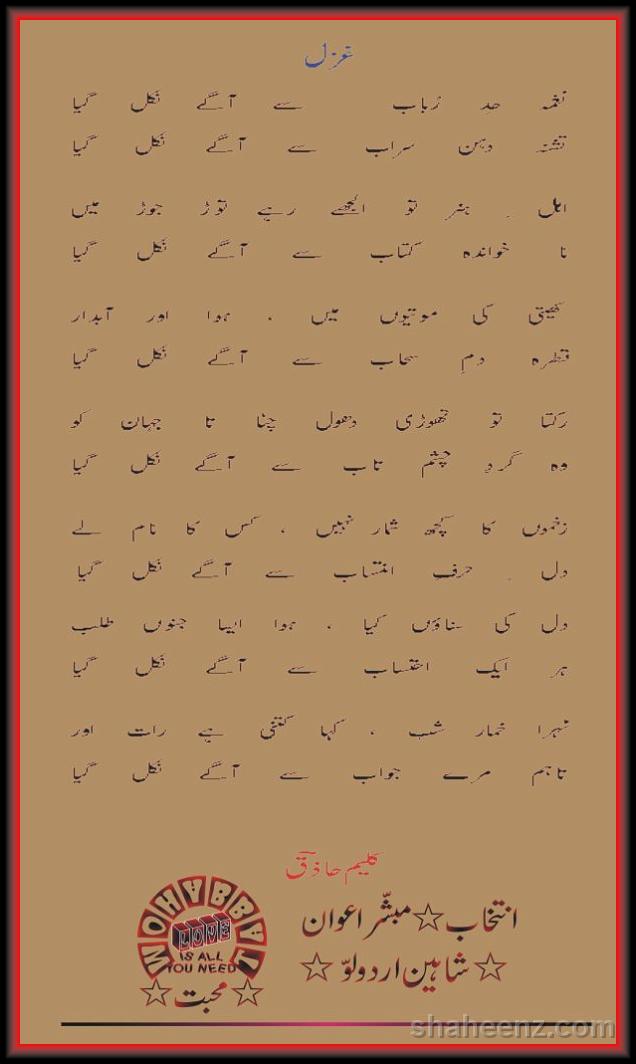 غزل
نغمہ حدِ رُباب سے آگے نکل گیا
تشنہ دہن سراب سے آگے نکل گیا
اہل ِ ہنر تو الجھے رہے توڑ جوڑ میں
نا خواندہ کتاب سے آگے نکل گیا
کھیتی کی موتیوں میں ، ہوا اور آبدار
قطرہ دمِ سحاب سے آگے نکل گیا
رکتا تو تھوڑی دھول چٹا تا جہان کو
وہ گردِ چشم تاب سے آگے نکل گیا
زخموں کا کچھ شمار نہیں ، کس کا نام لے
دل ِ حرفِ انتساب سے آگے نکل گیا
دل کی سناؤں کیا ، ہوا ایسا جنوں طلب
ہر ایک احتساب سے آگے نکل گیا
ٹہرا خمار شب ، کہا کتنی ہے رات اور
تاہم مرے جواب سے آگے نکل گیا
کلیم حاذق
انتخاب☆مبشّر اعوان
☆شاہین اردولوّ☆
LOVE
IS ALL
YOU NEED
☆محبت☆
shaheenz.com